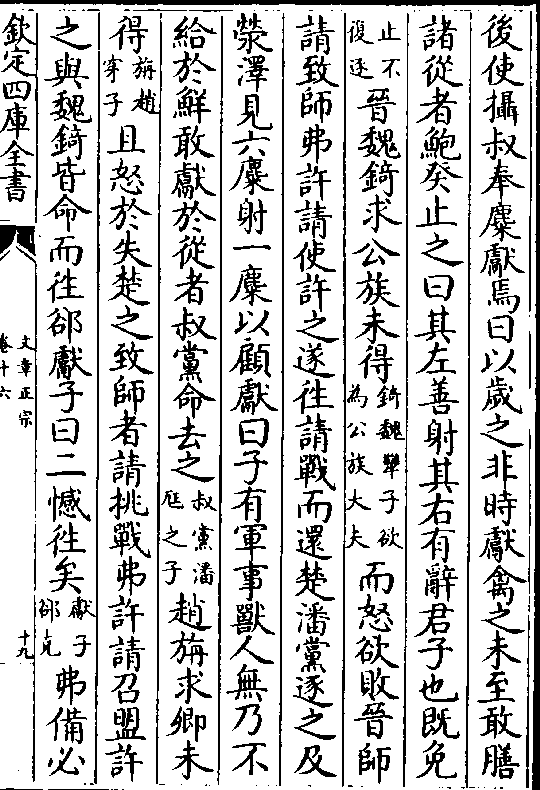 後使攝叔奉麋獻焉曰以歲之非時獻禽之未至敢膳
諸從者鮑癸止之曰其左善射其右有辭君子也既免
止不復逐晉魏錡求公族未得錡魏犨子欲為公族大夫而怒欲敗晉師
請致師弗許請使許之遂徃請戰而還楚潘黨逐之及
滎澤見六麋射一麋以顧獻曰子有軍事獸人無乃不
給於鮮敢獻於從者叔黨命去之叔黨潘尫之子趙旃求卿未
得旃趙穿子且怒於失楚之致師者請挑戰弗許請召盟許
之與魏錡皆命而徃郤獻子曰二憾徃矣獻子郤克弗備必
欽定四庫全書
文章正宗
卷十六
十九